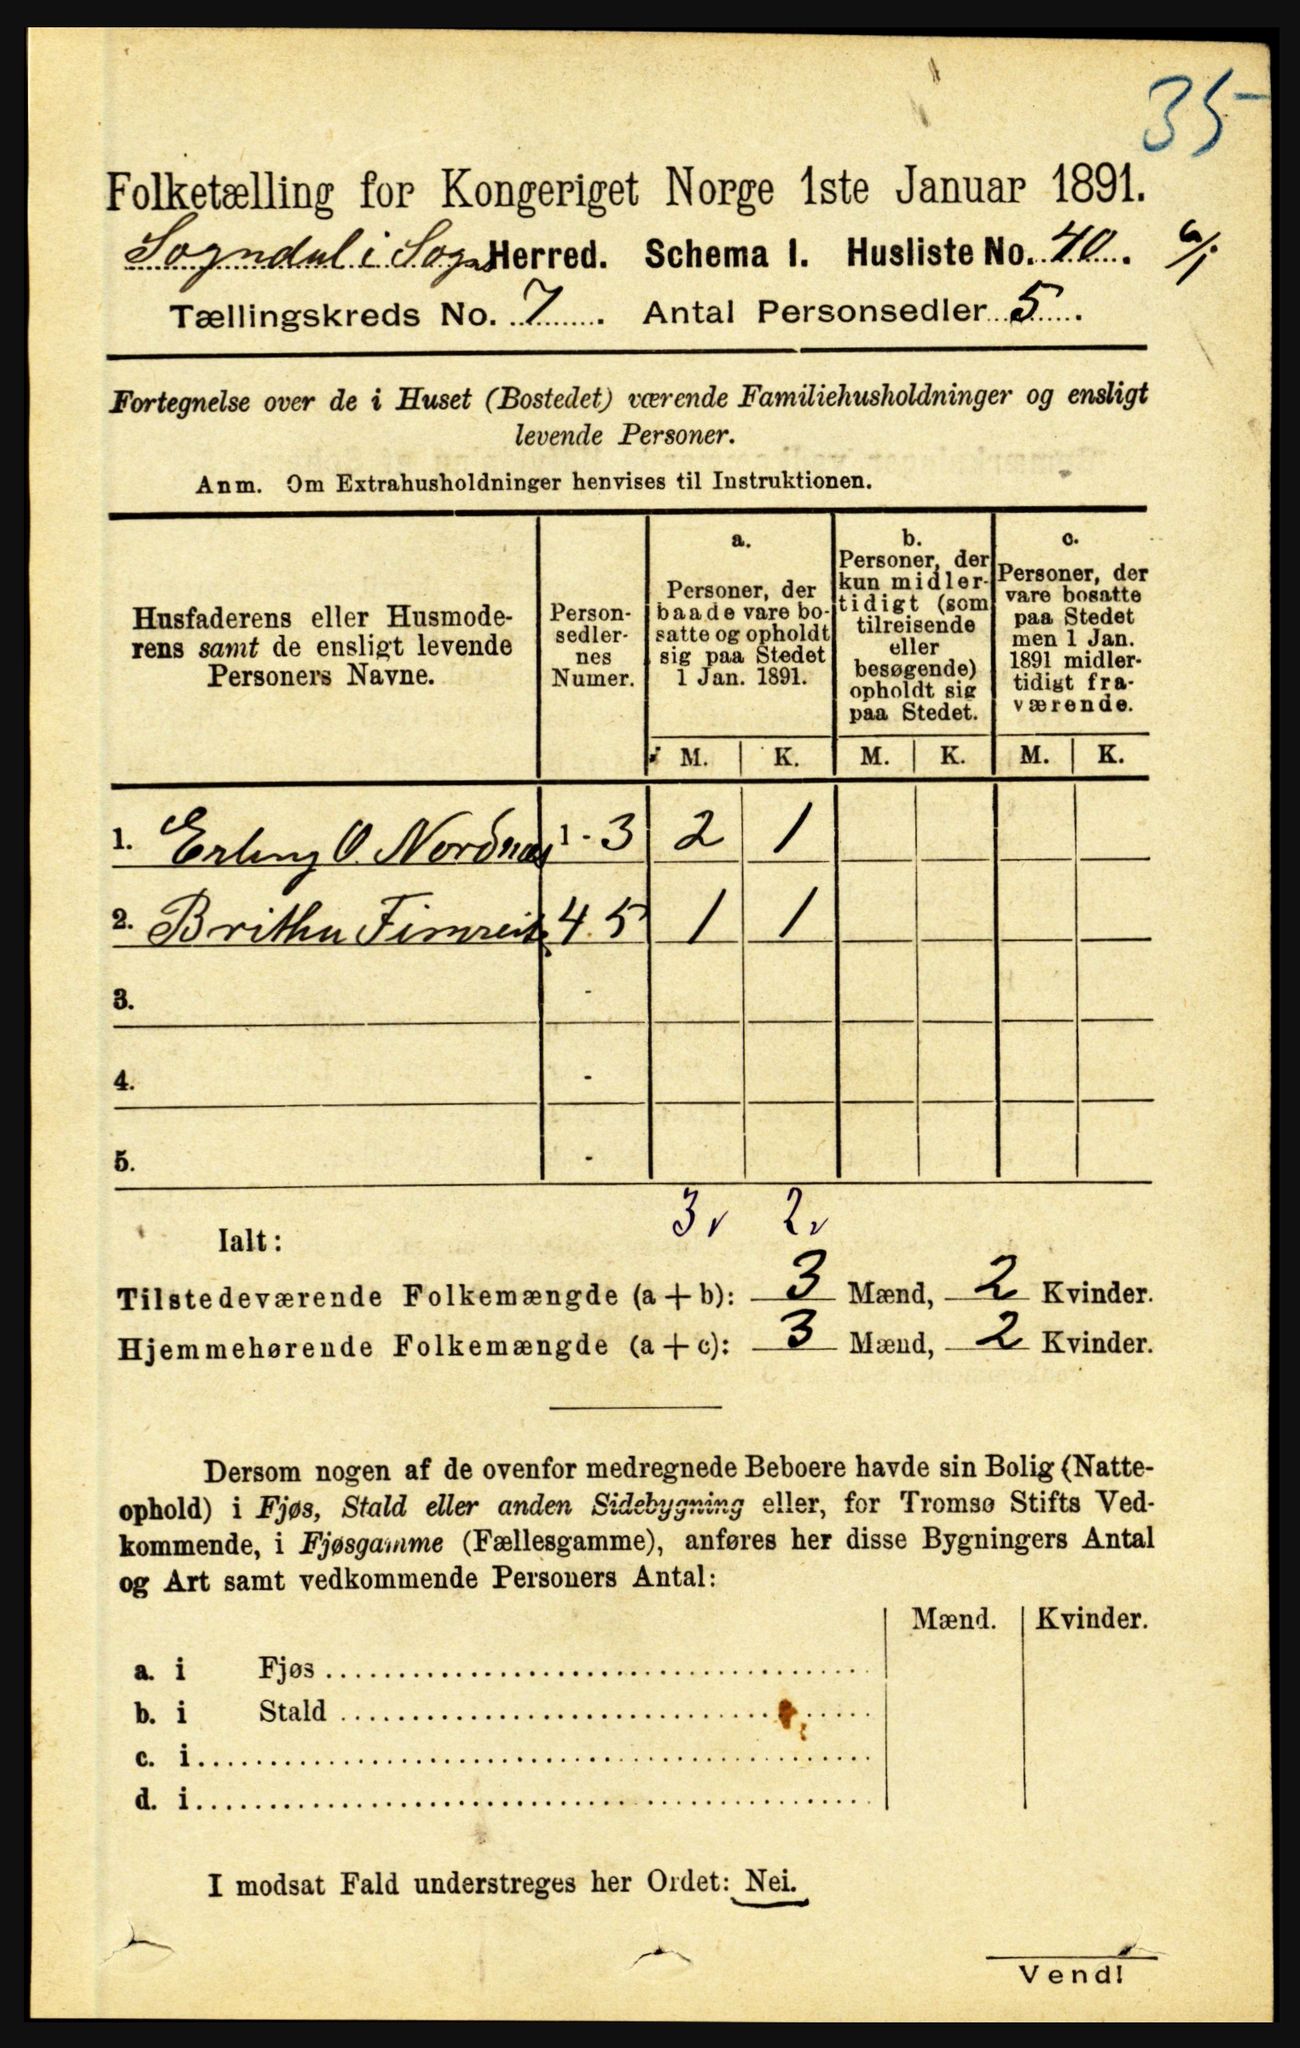 35
Folketælling for Kongeriget Norge 1ste Januar 1891.
Sogndal i Sogn Herred. Schema 1. Husliste No. 40. 6/1
Tællingskreds No. 7. Antal Personsedler 5.
Fortegnelse over de i Huset (Bostedet) værende Familiehusholdninger og ensligt
levende Personer.
Anm. Om Extrahusholdninger henvises til Instruktionen.
Husfaderens eller Husmode-
rens samt de ensligt levende
Personers Navne.
Person-
sedler-
nes
Numer.
a.
Personer, der
baade vare bo-
satte og opholdt
sig paa Stedet
1 Jan. 1891.
b.
Personer, der
kun midler-
tidigt (som
tilreisende
eller
besøgende)
opholdt sig
paa Stedet.
c.
Personer, der
vare bosatte
paa Stedet
men 1 Jan.
1891 midler-
tidigt fra-
værende.
M. K. M. K. M. K.
1. Erling O. Nordnæs 1 - 3 2 1
2. Britha Fimreite 4 - 5 1 1
3. -
4. -
5. -
3 v 2 v
Ialt:
Tilstedeværende Folkemængde (a + b): 3 Mænd, 2 Kvinder.
Hjemmehørende Folkemængde (a + c): 3 Mænd, 2 Kvinder.
Dersom nogen af de ovenfor medregnede Beboere havde sin Bolig (Natte-
ophold) i Fjøs, Stald eller anden Sidebygning eller, for Tromsø Stifts Ved-
kommende, i Fjøsgamme (Fællesgamme), anføres her disse Bygningers Antal
og Art samt vedkommende Personers Antal:
Mænd. Kvinder.
a. i Fjøs
b. i Stald
c. i
d. i
I modsat Fald understreges her Ordet: Nei.
Vend!